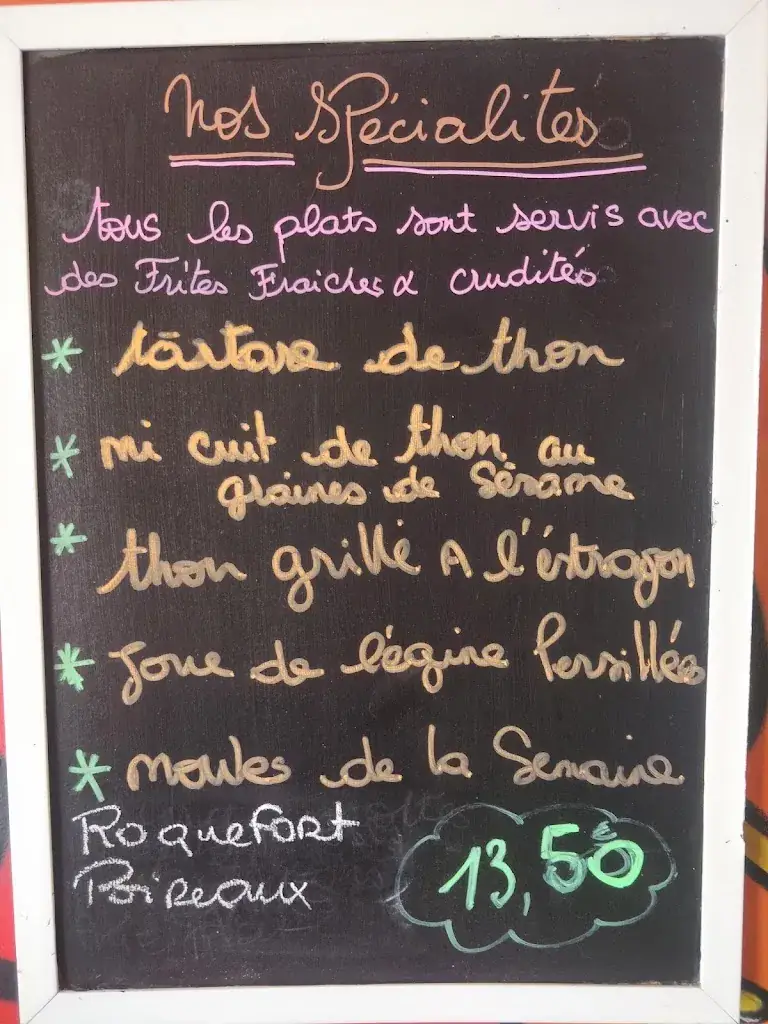 Nos Spécialites
tous les plats sont servis avec
des Frites Fraiches & crudités
* tartare de thon
* mi cuit de thon au
graines de Sésame
* thon grillé A l'éstragon
* Joue de l'égine Persillées
* moules de la Semaine
Roquefort
Poireaux
13,50€